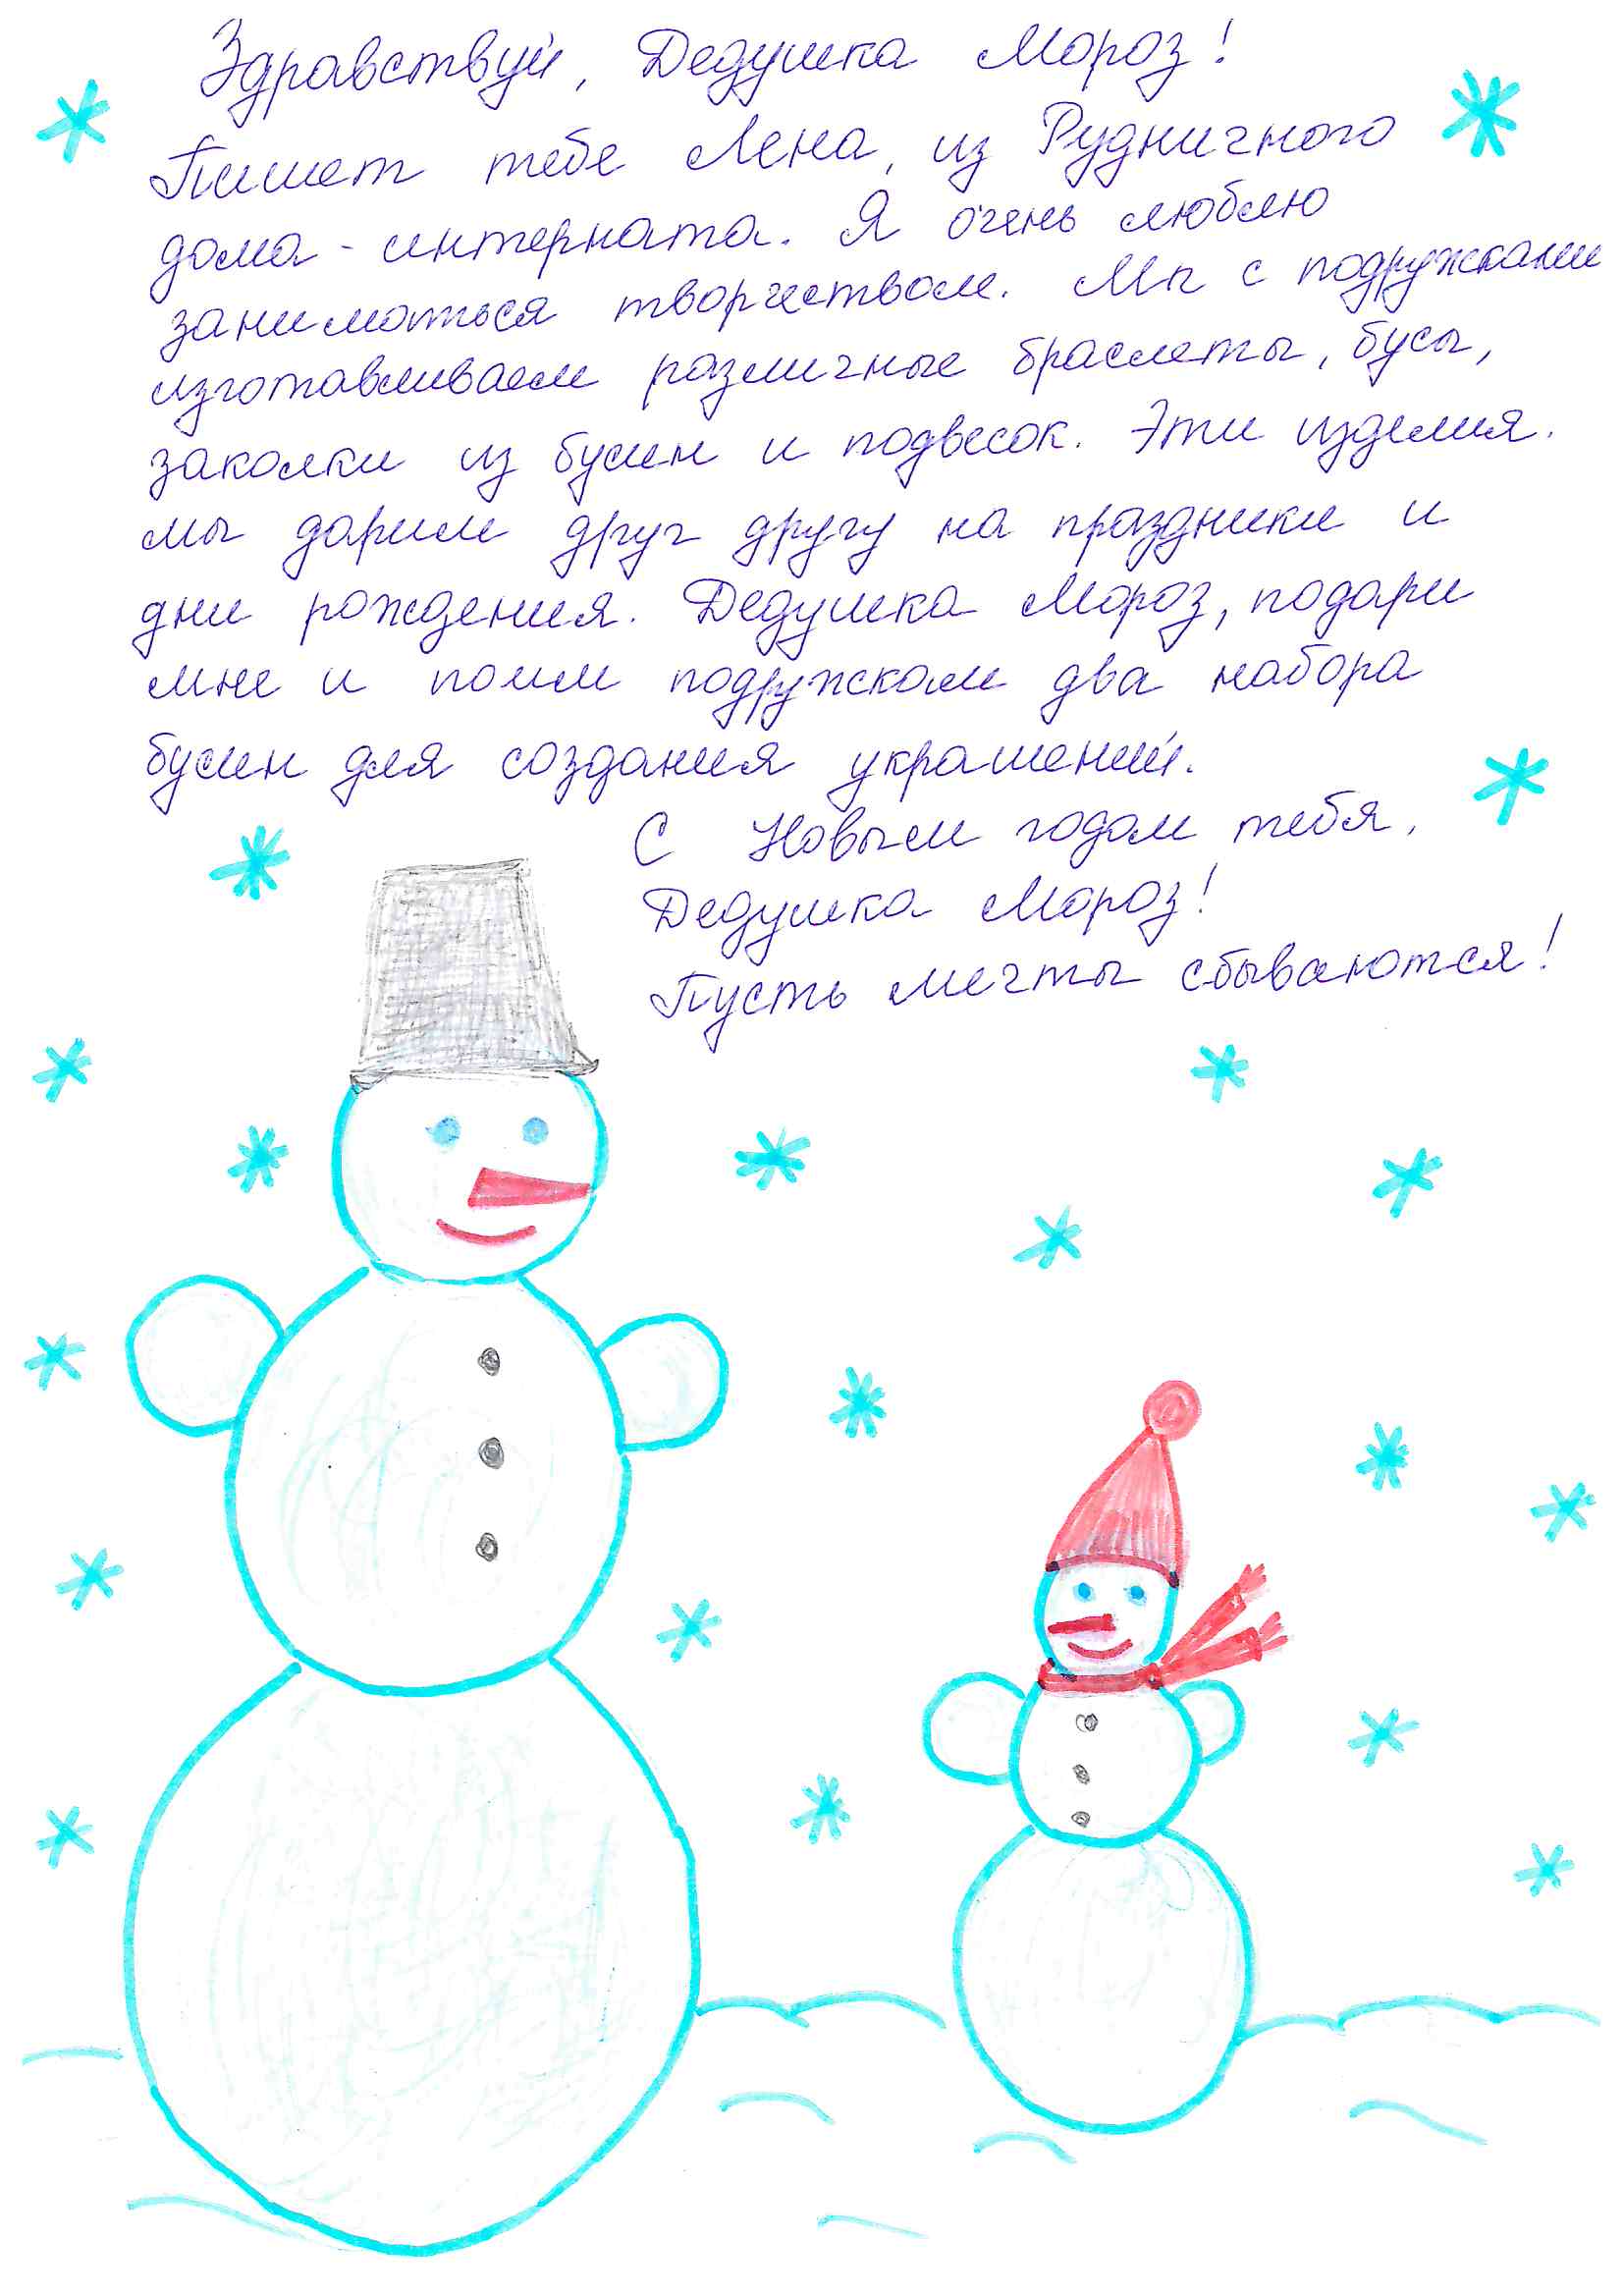 Здравствуй, Дедушка Мороз!
Пишет тебе Лена, из Рудничного
дома-интерната. Я очень люблю
заниматься творчеством. Мы с подружками
изготавливаем различные браслеты, бусы,
заколки из бусин и подвесок. Эти изделия.
мы дарим друг другу на праздники и
дни рождения. Дедушка Мороз, подари
мне и подружкам два набора
бусин для создания украшений.
С Новым годом тебя,
Дедушка Мороз!
Пусть мечты сбываются!